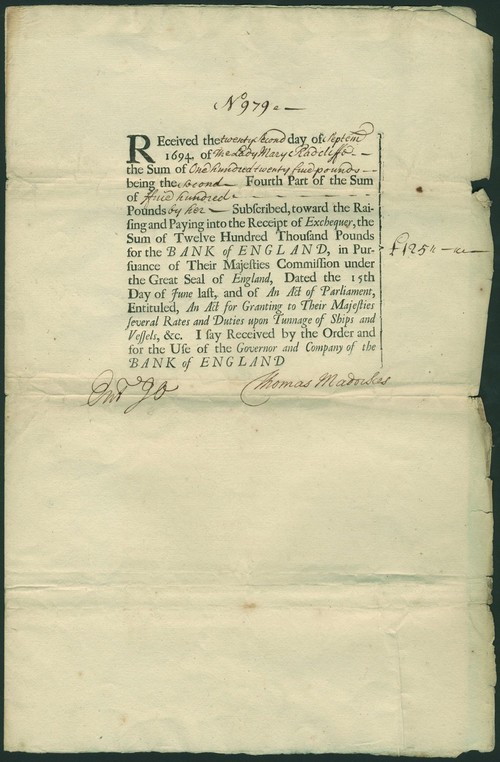 No 979
REceived the twenty Second day of Septem
1694. of The Lady Mary Radcliffe
the Sum of One hundred twenty five pounds
being the Second Fourth Part of the Sum
of ffive hundred
Pounds by her Subscribed, toward the Rai-
sing and Paying into the Receipt of Exchequer, the
Sum of Twelve Hundred Thousand Pounds
for the BANK of ENGLAND, in Pur-
suance of Their Majesties Commission under
the Great Seal of England, Dated the 15th
Day of June last, and of An Act of Parliament,
Entituled, An Act for Granting to Their Majesties
several Rates and Duties upon Tunnage of Ships and
Vessels, &c. I say Received by the Order and
for the Use of the Governor and Company of the
BANK of ENGLAND
£125
Thomas Madockes